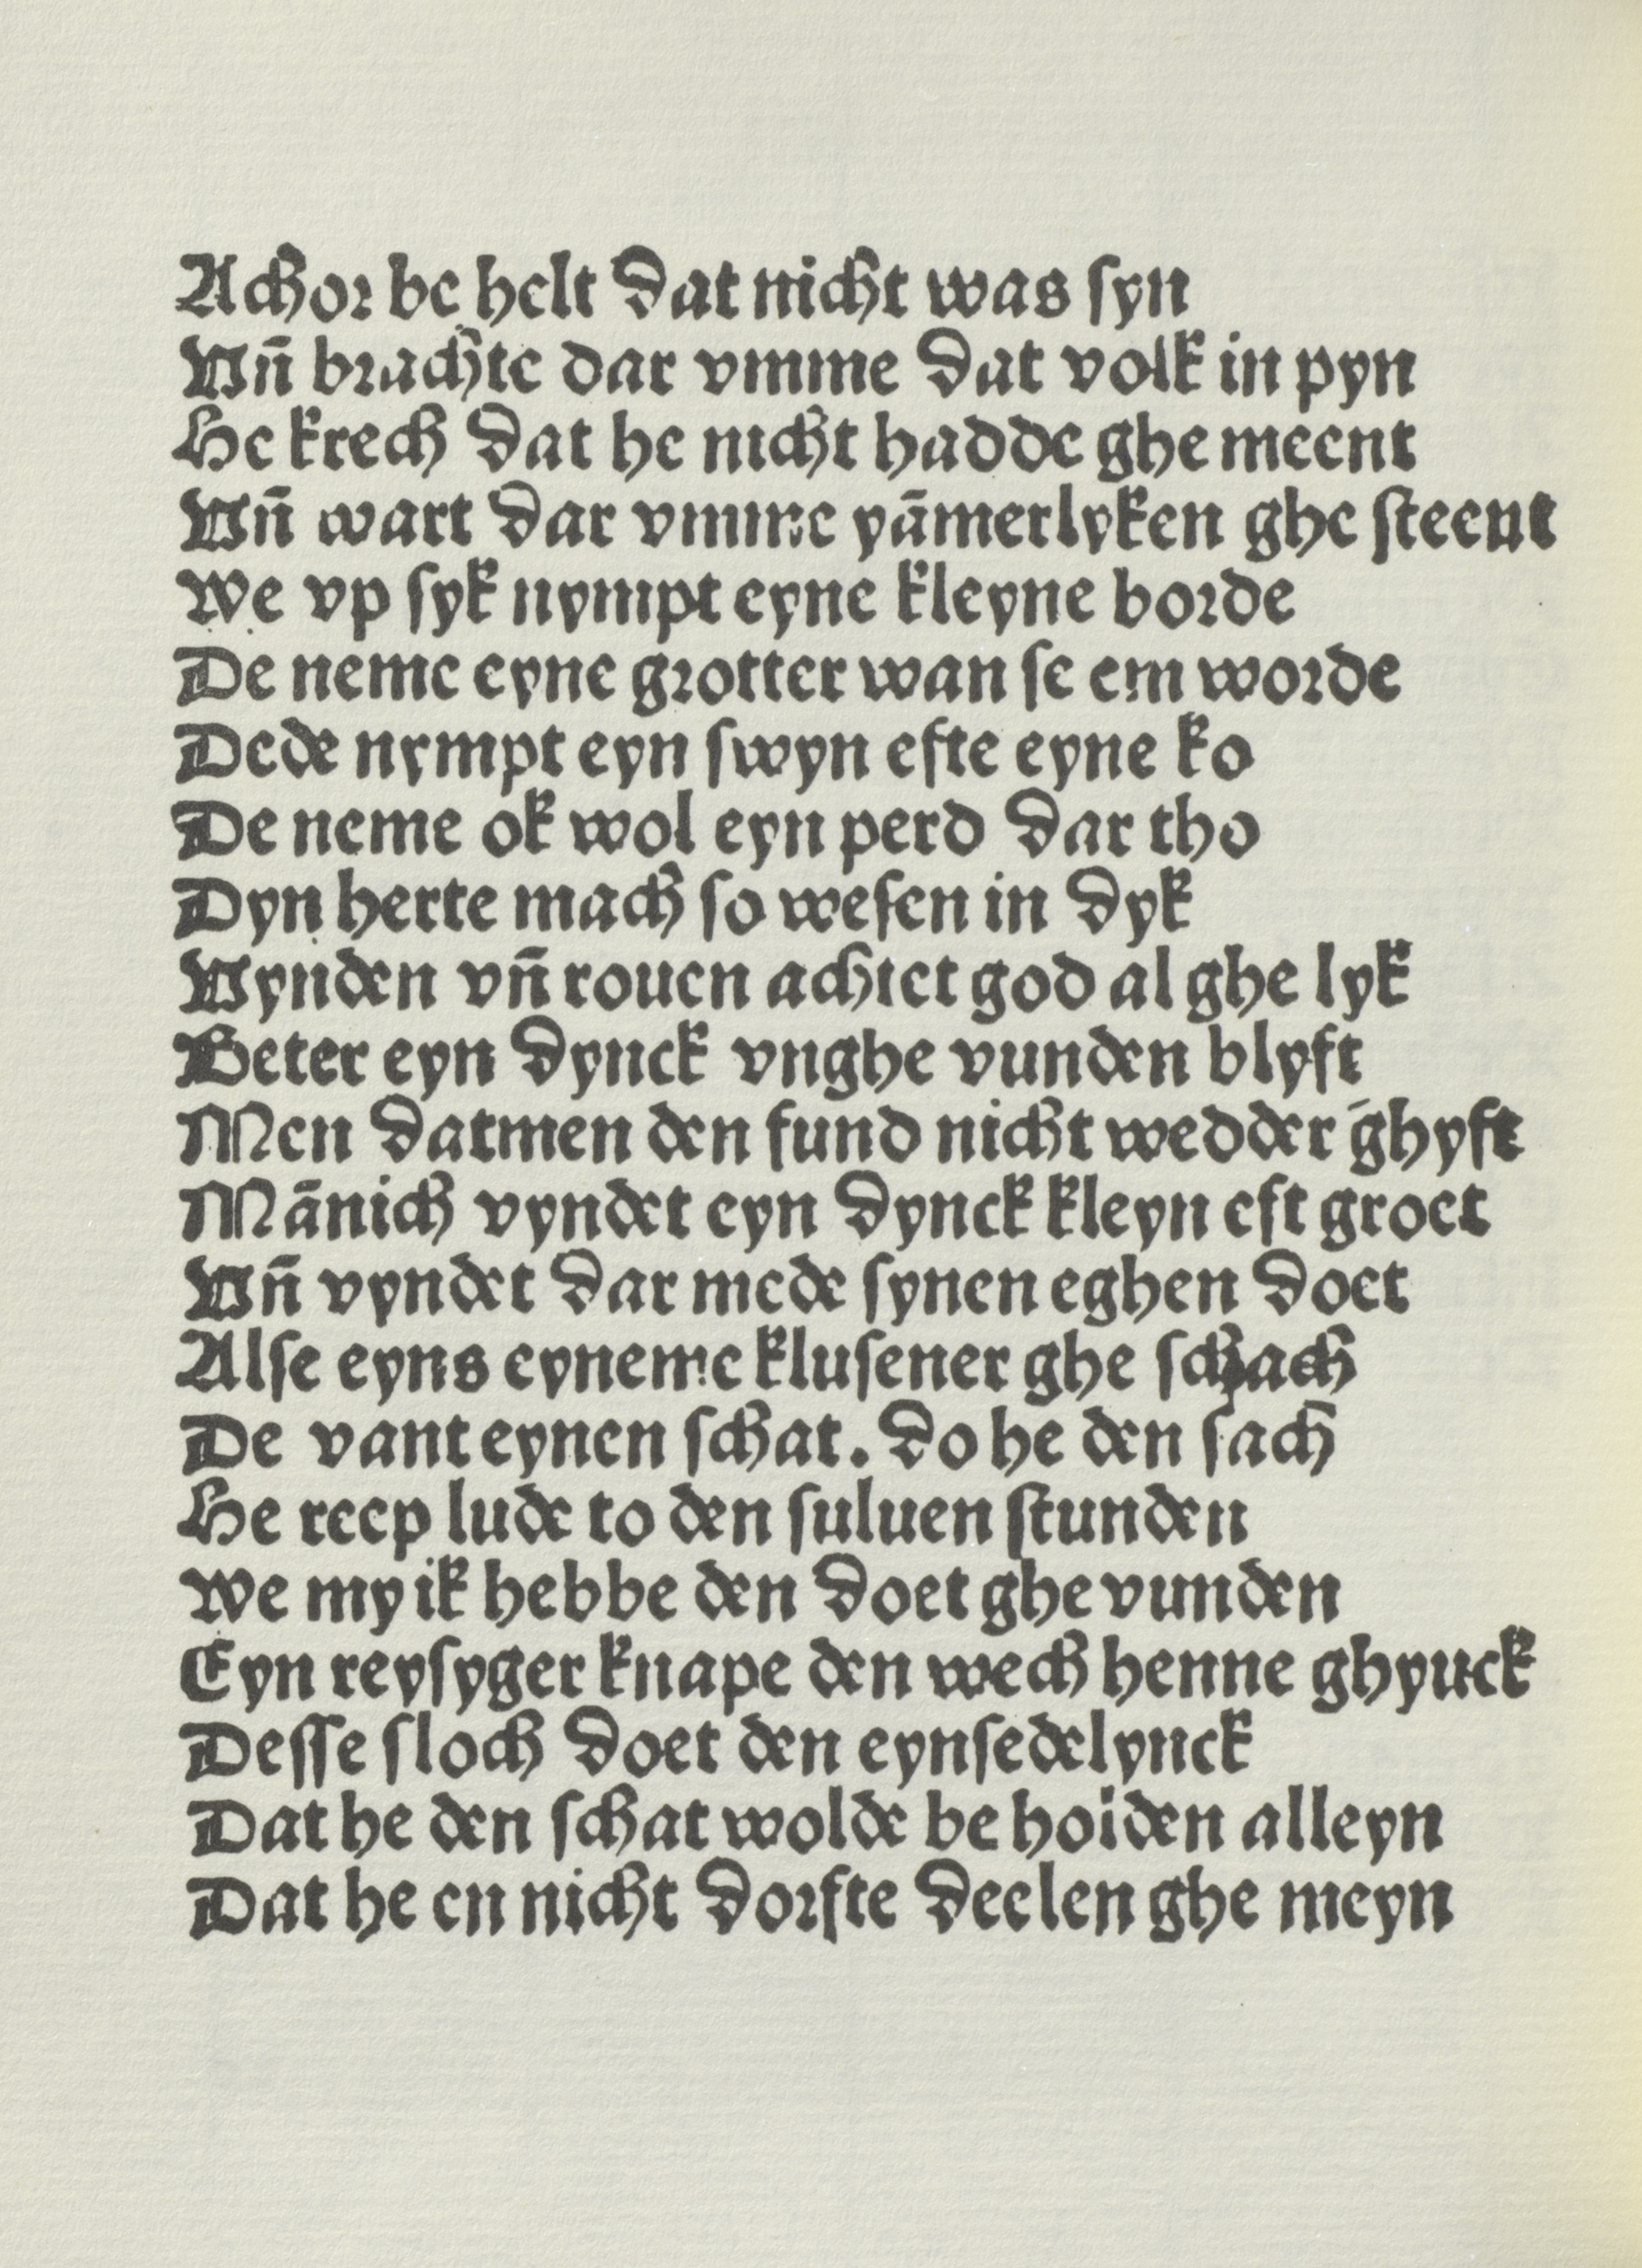 Achor be helt dat nicht was ſyn
Vn̄ brachte dar vmme dat volk in pyn
He krech dat he nicht hadde ghe meent
Vn̄ wart dar vmme yāmerlyken ghe ſteent
We vp ſyk nympt eyne kleyne borde
De neme eyne grotter wan ſe em worde
Dede nympt eyn ſwyn efte eyne ko
De neme ok wol eyn perd dar tho
Dyn herte mach ſo weſen in dyk
Vynden vn̄ rouen achtet god al ghe lyk
Beter eyn dynck vnghe vunden blyft
Men datmen den fund nicht wedder ghyft
Mānich vyndet eyn dynck kleyn eft groet
Vn̄ vyndet dar mede ſynen eghen doet
Alſe eyns eyneme kluſener ghe ſchach
De vant eynen ſchat. do he den ſach
He reep lude to den ſuluen ſtunden
We my ik hebbe den doet ghe vunden
Eyn reyſyger knape den wech henne ghynck
Deſſe ſloch doet den eynſedelynck
Dat he den ſchat wolde be holden alleyn
Dat he en nicht dorfte deelen ghe meyn